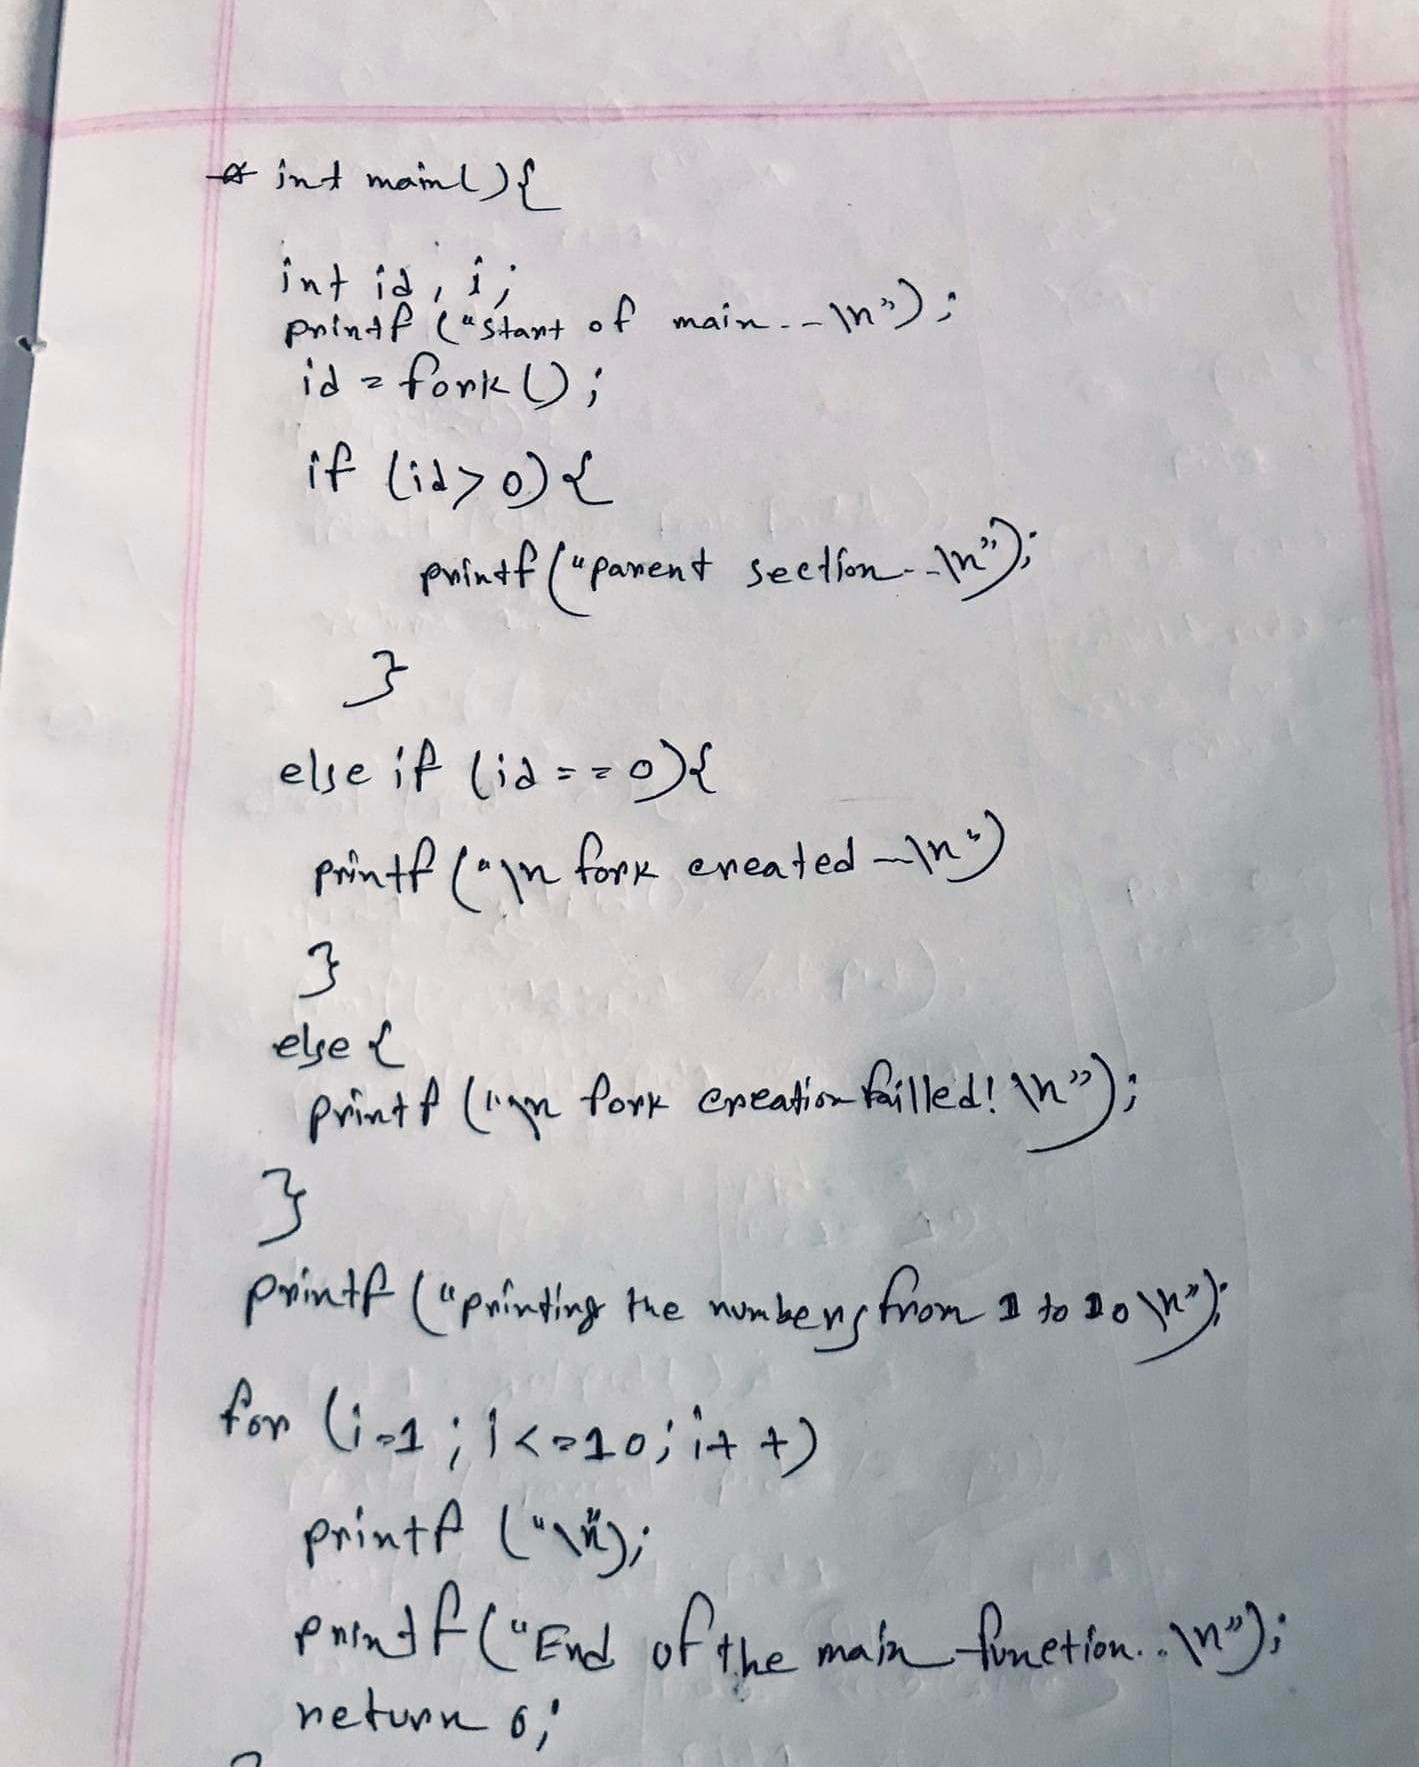 int main(){
int id, i;
printf ("start of main.-- \n");
id = fork();
if (id>0){
printf("parent section--\n");
}
else if (id==0){
printf ("\n fork created --\n")
}
else {
printf ("\n fork creation failled! \n");
}
printf ("printing the numbers from 1 to 10 \n");
for (i=1; i<=10; i++)
printf ("\n");
printf("End of the main function.. \n");
return 0;
}